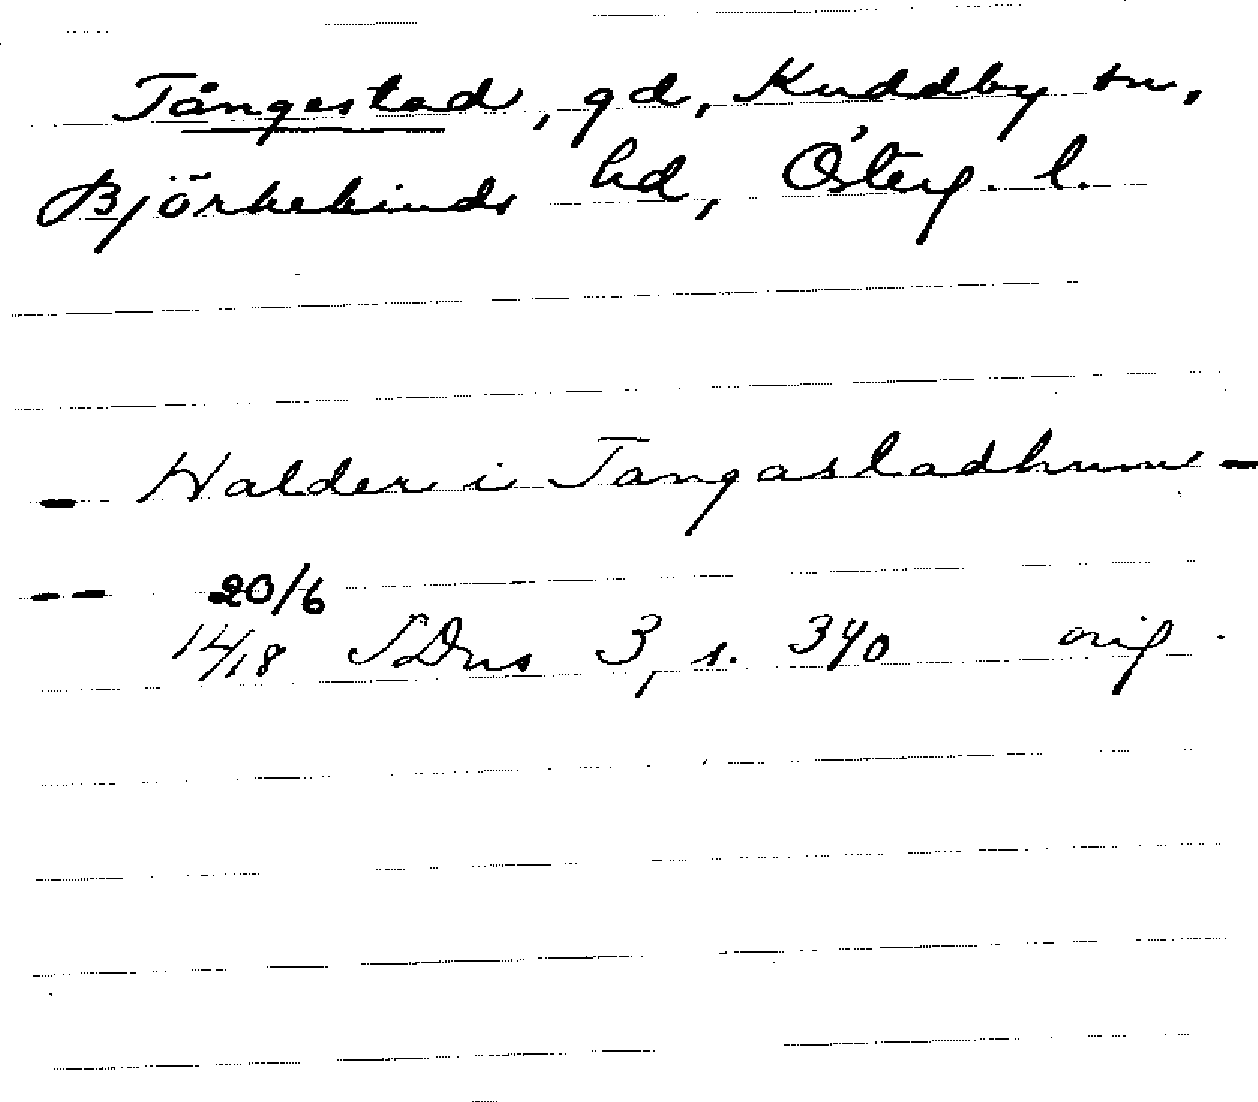 Tångestad, gd, Kuddby sn,
Björkekinds hd, Österg. l.
- Halder i Tangastadhum -
- - 20/6
1418 SDns 3, s. 340 orig.